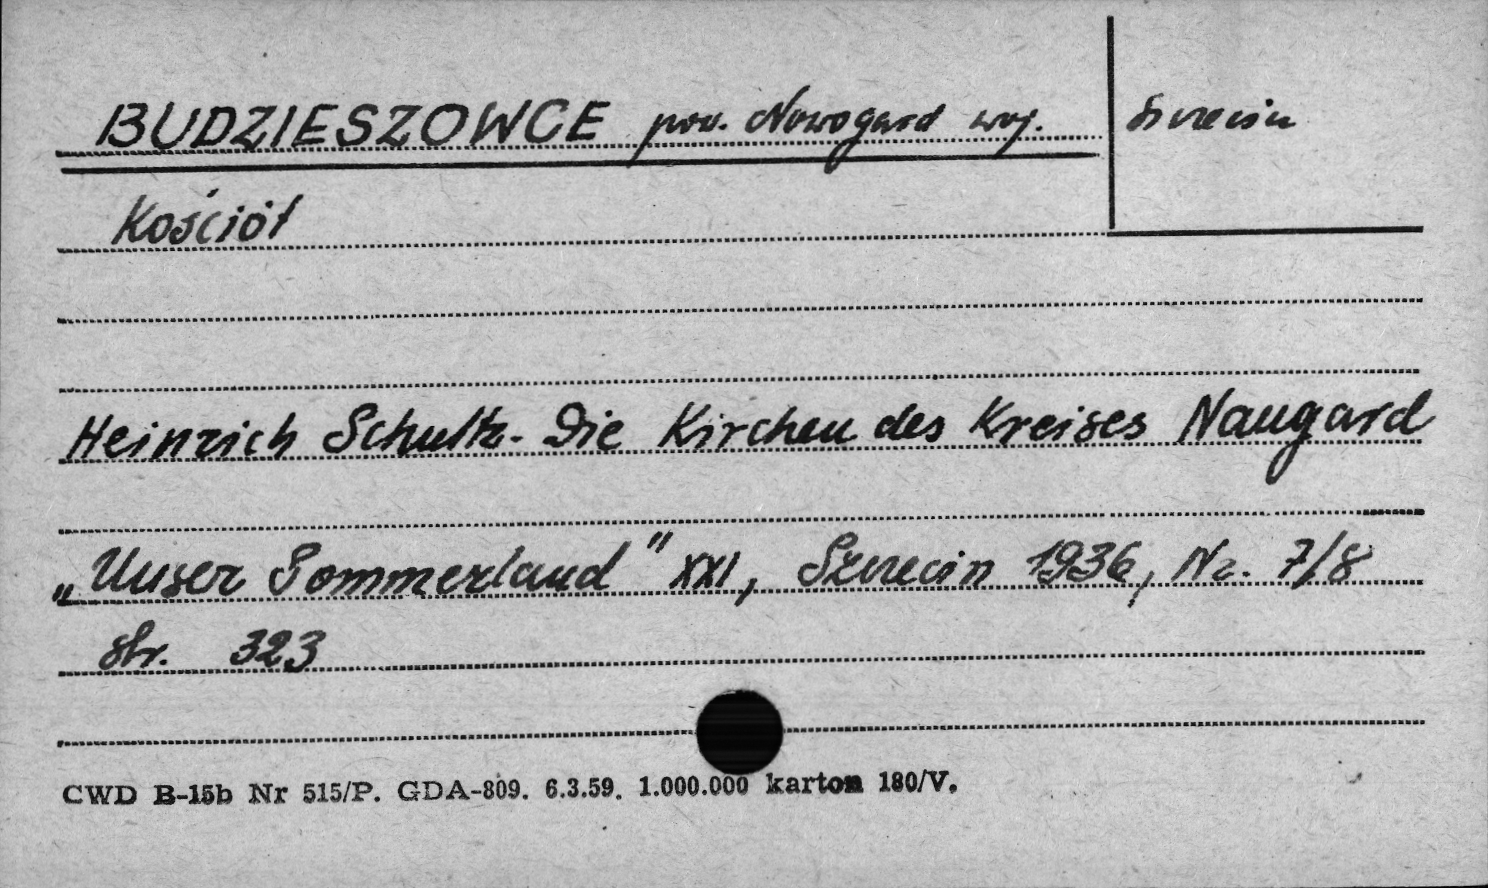 BUDZIESZOWCE pow. Nowogard woj. Szczecin
Kościół
Heinrich Schultz. Die Kirchen des Kreises Naugard
„Unser Pommerland" XXI, Szczecin 1936, Nr. 7/8
str. 323
CWD B-15b Nr 515/P. GDA-809. 6.3.59. 1.000.000 karton 180/V.